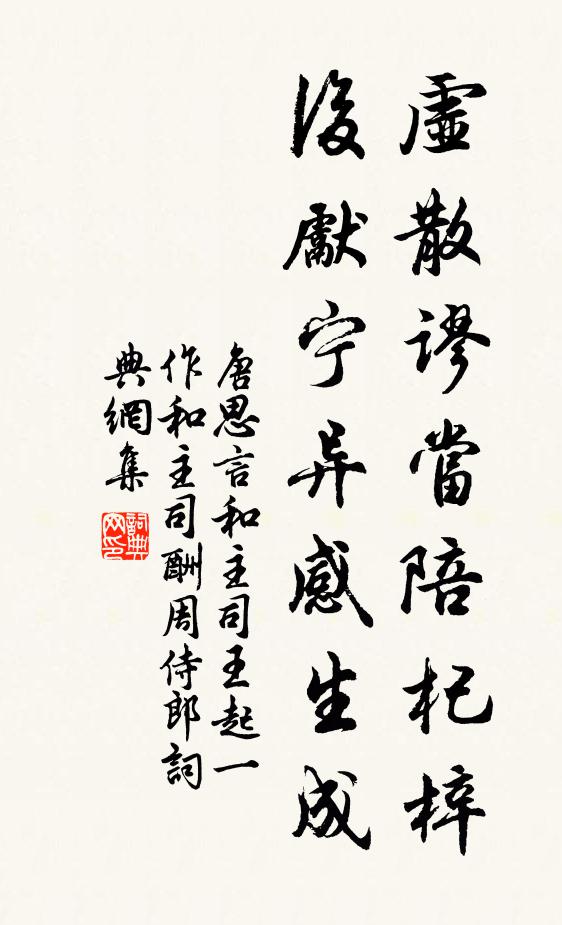 虛散謬當陪杞梓
後獻宁异感生成
唐思言和主司王起一
作和主司酬周侍郎詞
典網集
詞典
网印